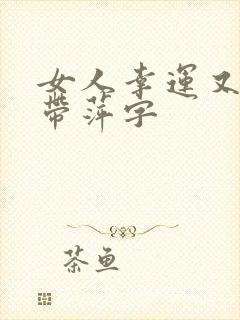 女人幸運又
帶萍字
茶鱼